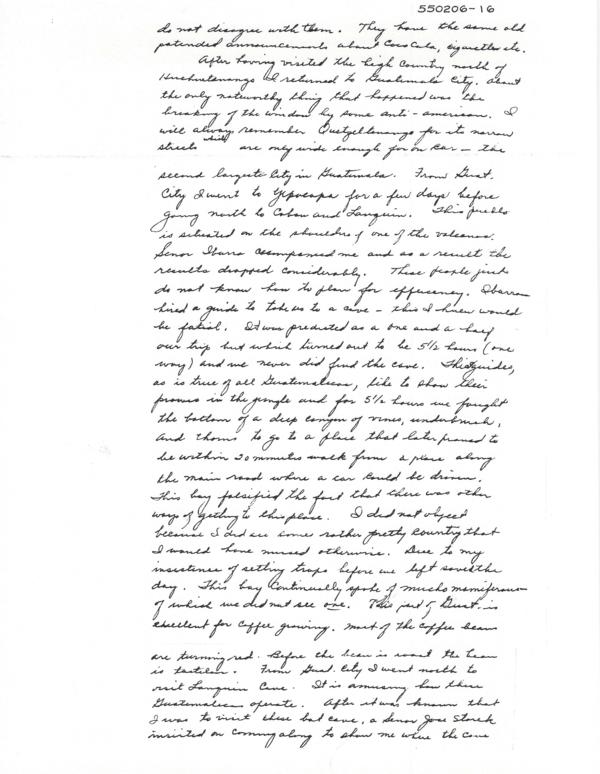 550206-16
do not disagree with them. They have the same old
patended announcements about Coca Cola, cigarettes etc.
After having visited the high country north of
Huehuetenango I returned to Guatemala City. About
the only noteworthy thing that happened was the
breaking of the window by some anti-american. I
will always remember Quetzeltenango for its narrow
streets which are only wide enough for on car - the
second largest city in Guatemala. From Guat.
City I went to Yepocapa for a few days before
going north to Coban and Lanquin. This pueblo
is situated on the shoulders of one of the volcanos.
Senor Ibarra accompanied me and as a result the
results dropped considerably. These people just
do not know how to plan for efficiency. Ibarra
hired a guide to take us to a cave - this I knew would
be fatial. It was predicted as a one and a half
our trip but which turned out to be 5 1/2 hours (one
way) and we never did find the cave. This guides,
as is true of all Guatemalecan, like to show their
prowes in the jungle and for 5 1/2 hours we fought
the bottom of a deep canyon of vines, underbrush,
and thorns to go to a place that later proved to
be within 20 minutes walk from a place along
the main road where a car could be driven.
This boy falsified the fact that there was other
ways of getting to this place. I did not object
because I did see some rather pretty country that
I would have missed otherwise. Due to my
insistence of setting traps before we left saved the
day. This boy continually spoke of mucho mamiferous
of which we did not see one. This part of Guat. is
excellent for coffee growing. Most of the coffee beans
are turning red. Before the bean is roast the bean
is tasteless. From Guat. City I went north to
visit Lanquin Cave. It is amusing how these
Guatemalecan operate. After it was known that
I was to visit these bat cave, a Senor Jose Storek
insisted on coming along to show me where the cave